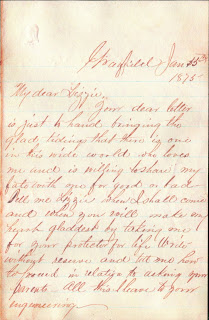 Grayfield Jan 25th
1875
My dear Lizzie,
Your dear letter
is just to hand bringing the
glad tidings that there is one
in this wide world who loves
me and is willing to share my
fate with me for good or bad
Tell me Lizzie when I shall come
and when you will make my
heart gladdest by taking me
for your protector for life. Write
without reserve and let me how
to proceed in relation to asking your
Parents. All this I leave to your
engineering